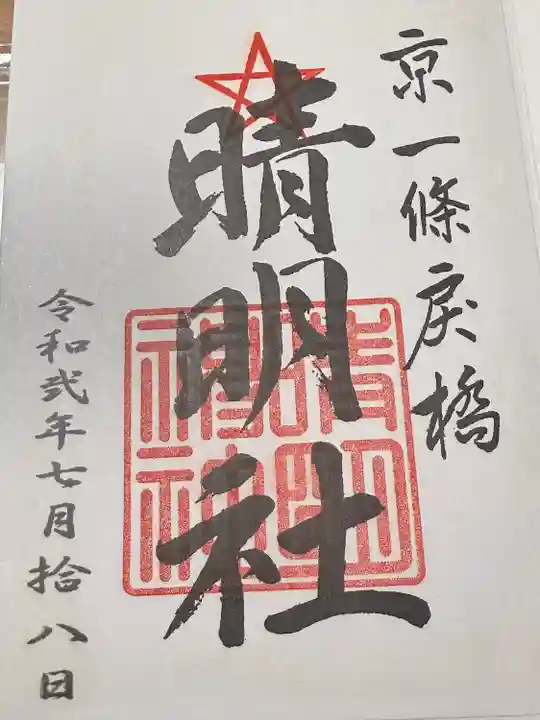 京一條戻橋
晴明社
晴明
神社
令和弐年七月拾八日